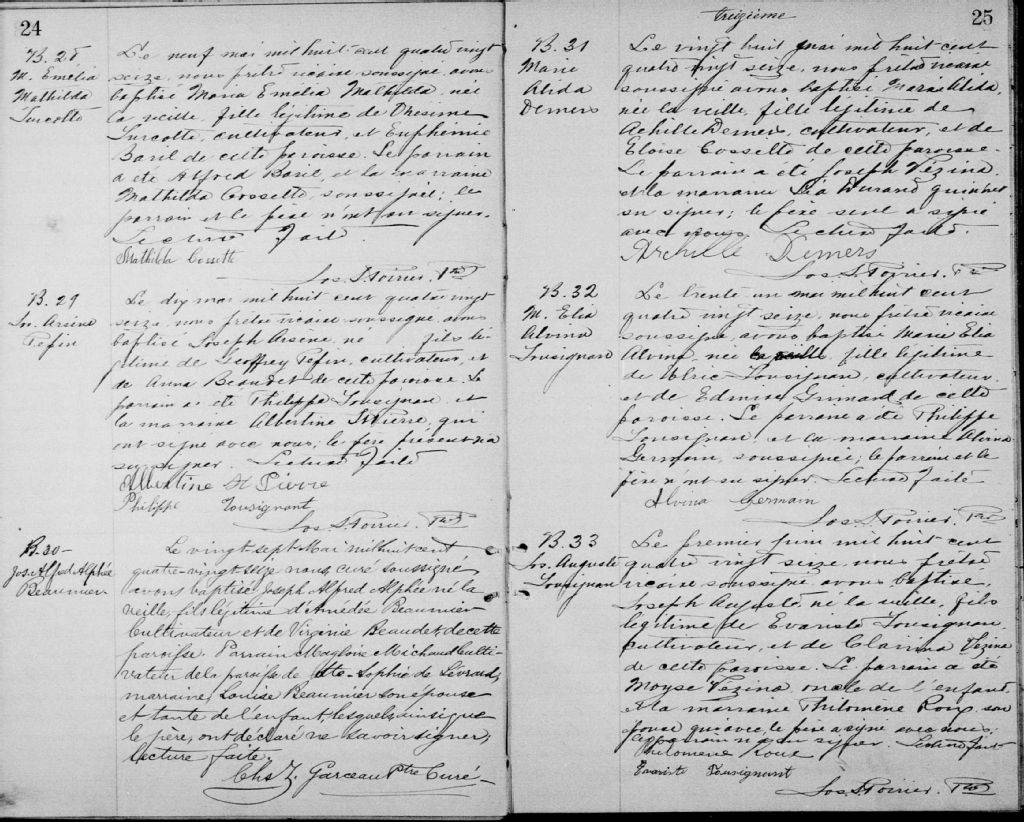 24
B. 28
M. Emélia
Mathilda
Turcotte
Le neuf mai mil huit cent quatre vingt
seize, nous prêtre vicaire soussigné, avons
baptisé Maria Emélia Mathilda, née
la veille, fille légitime de Onésime
Turcotte, cultivateur, et Euphémie
Baril de cette paroisse. Le parrain
a été Alfred Baril, et la marraine
Mathilda Cossette, soussignée; le
parrain et le père n'ont su signer.
Lecture faite.
Mathilda Cossette
Jos. S. Poirier. Ptre
B. 29
Jn. Arsène
Pepin
Le dix mai mil huit cent quatre vingt
seize, nous prêtre vicaire soussigné, avons
baptisé Joseph Arsène, né fils lé-
gitime de Geoffrey Pepin, cultivateur, et
de Anna Beaudet de cette paroisse. Le
parrain a été Philippe Tousignan, et
la marraine Albertine St Pierre, qui
ont signé avec nous; le père présent n'a
su signer. Lecture faite
Albertine St Pierre
Philippe Tousignant
Jos. S. Poirier. Ptre
B. 30-
Jos. Alfred Alphée
Beaumier
Le vingt sept Mai mil huit cent
quatre-vingt seize nous, curé soussigné,
avons baptisé Joseph Alfred Alphée né la
veille, fils légitime d'Amédée Beaumier
Cultivateur et de Virginie Beaudet de cette
paroisse. Parrain Magloire Michaud Culti-
vateur de la paroisse de Ste-Sophie de Lévrard,
marraine, Louise Beaumier son épouse
et tante de l'enfant, lesquels, ainsi que
le père, ont déclaré ne savoir signer,
lecture faite.
Chs Z. Garceau Ptre Curé-
treizième
25
B. 31
Marie
Alida
Demers
Le vingt huit mai mil huit cent
quatre vingt seize, nous prêtre vicaire
soussigné avons baptisé Marie Alida,
née la veille, fille légitime de
Achille Demers, cultivateur, et de
Eloise Cossette de cette paroisse.
Le parrain a été Joseph Vezina
et la marraine Léa Durand qui n'ont
su signer; le père seul a signé
avec nous. Lecture faite.
Archille Demers
Jos. S. Poirier. Ptre
B. 32
M. Elia
Alvina
Tousignan
Le trente un mai mil huit cent
quatre vingt seize, nous prêtre vicaire
soussigné, avons baptisé Marie Elia
Alvina, née la veille, fille légitime
de Ulric Tousignan, cultivateur,
et de Edmire Grimard de cette
paroisse. Le parrain a été Philippe
Tousignan, et la marraine Alvina
Germain, soussignée; le parrain et le
père n'ont su signer. Lecture faite
Alvina Germain
Jos. S. Poirier. Ptre
B. 33
Jos. Auguste
Tousignan
Le premier juin mil huit cent
quatre vingt seize, nous prêtre
vicaire soussigné avons baptisé,
Joseph Auguste, né la veille, fils
légitime de Evariste Tousignan,
cultivateur, et de Clarina Vezina
de cette paroisse. Le parrain a été
Moyse Vezina, oncle de l'enfant,
et la marraine Philomène Roux, son
épouse qui avec le père a signé avec nous,
le parrain n'a su signer. Lecture faite
Philomène Roux
Evariste Tousignant
Jos. S. Poirier. Ptre